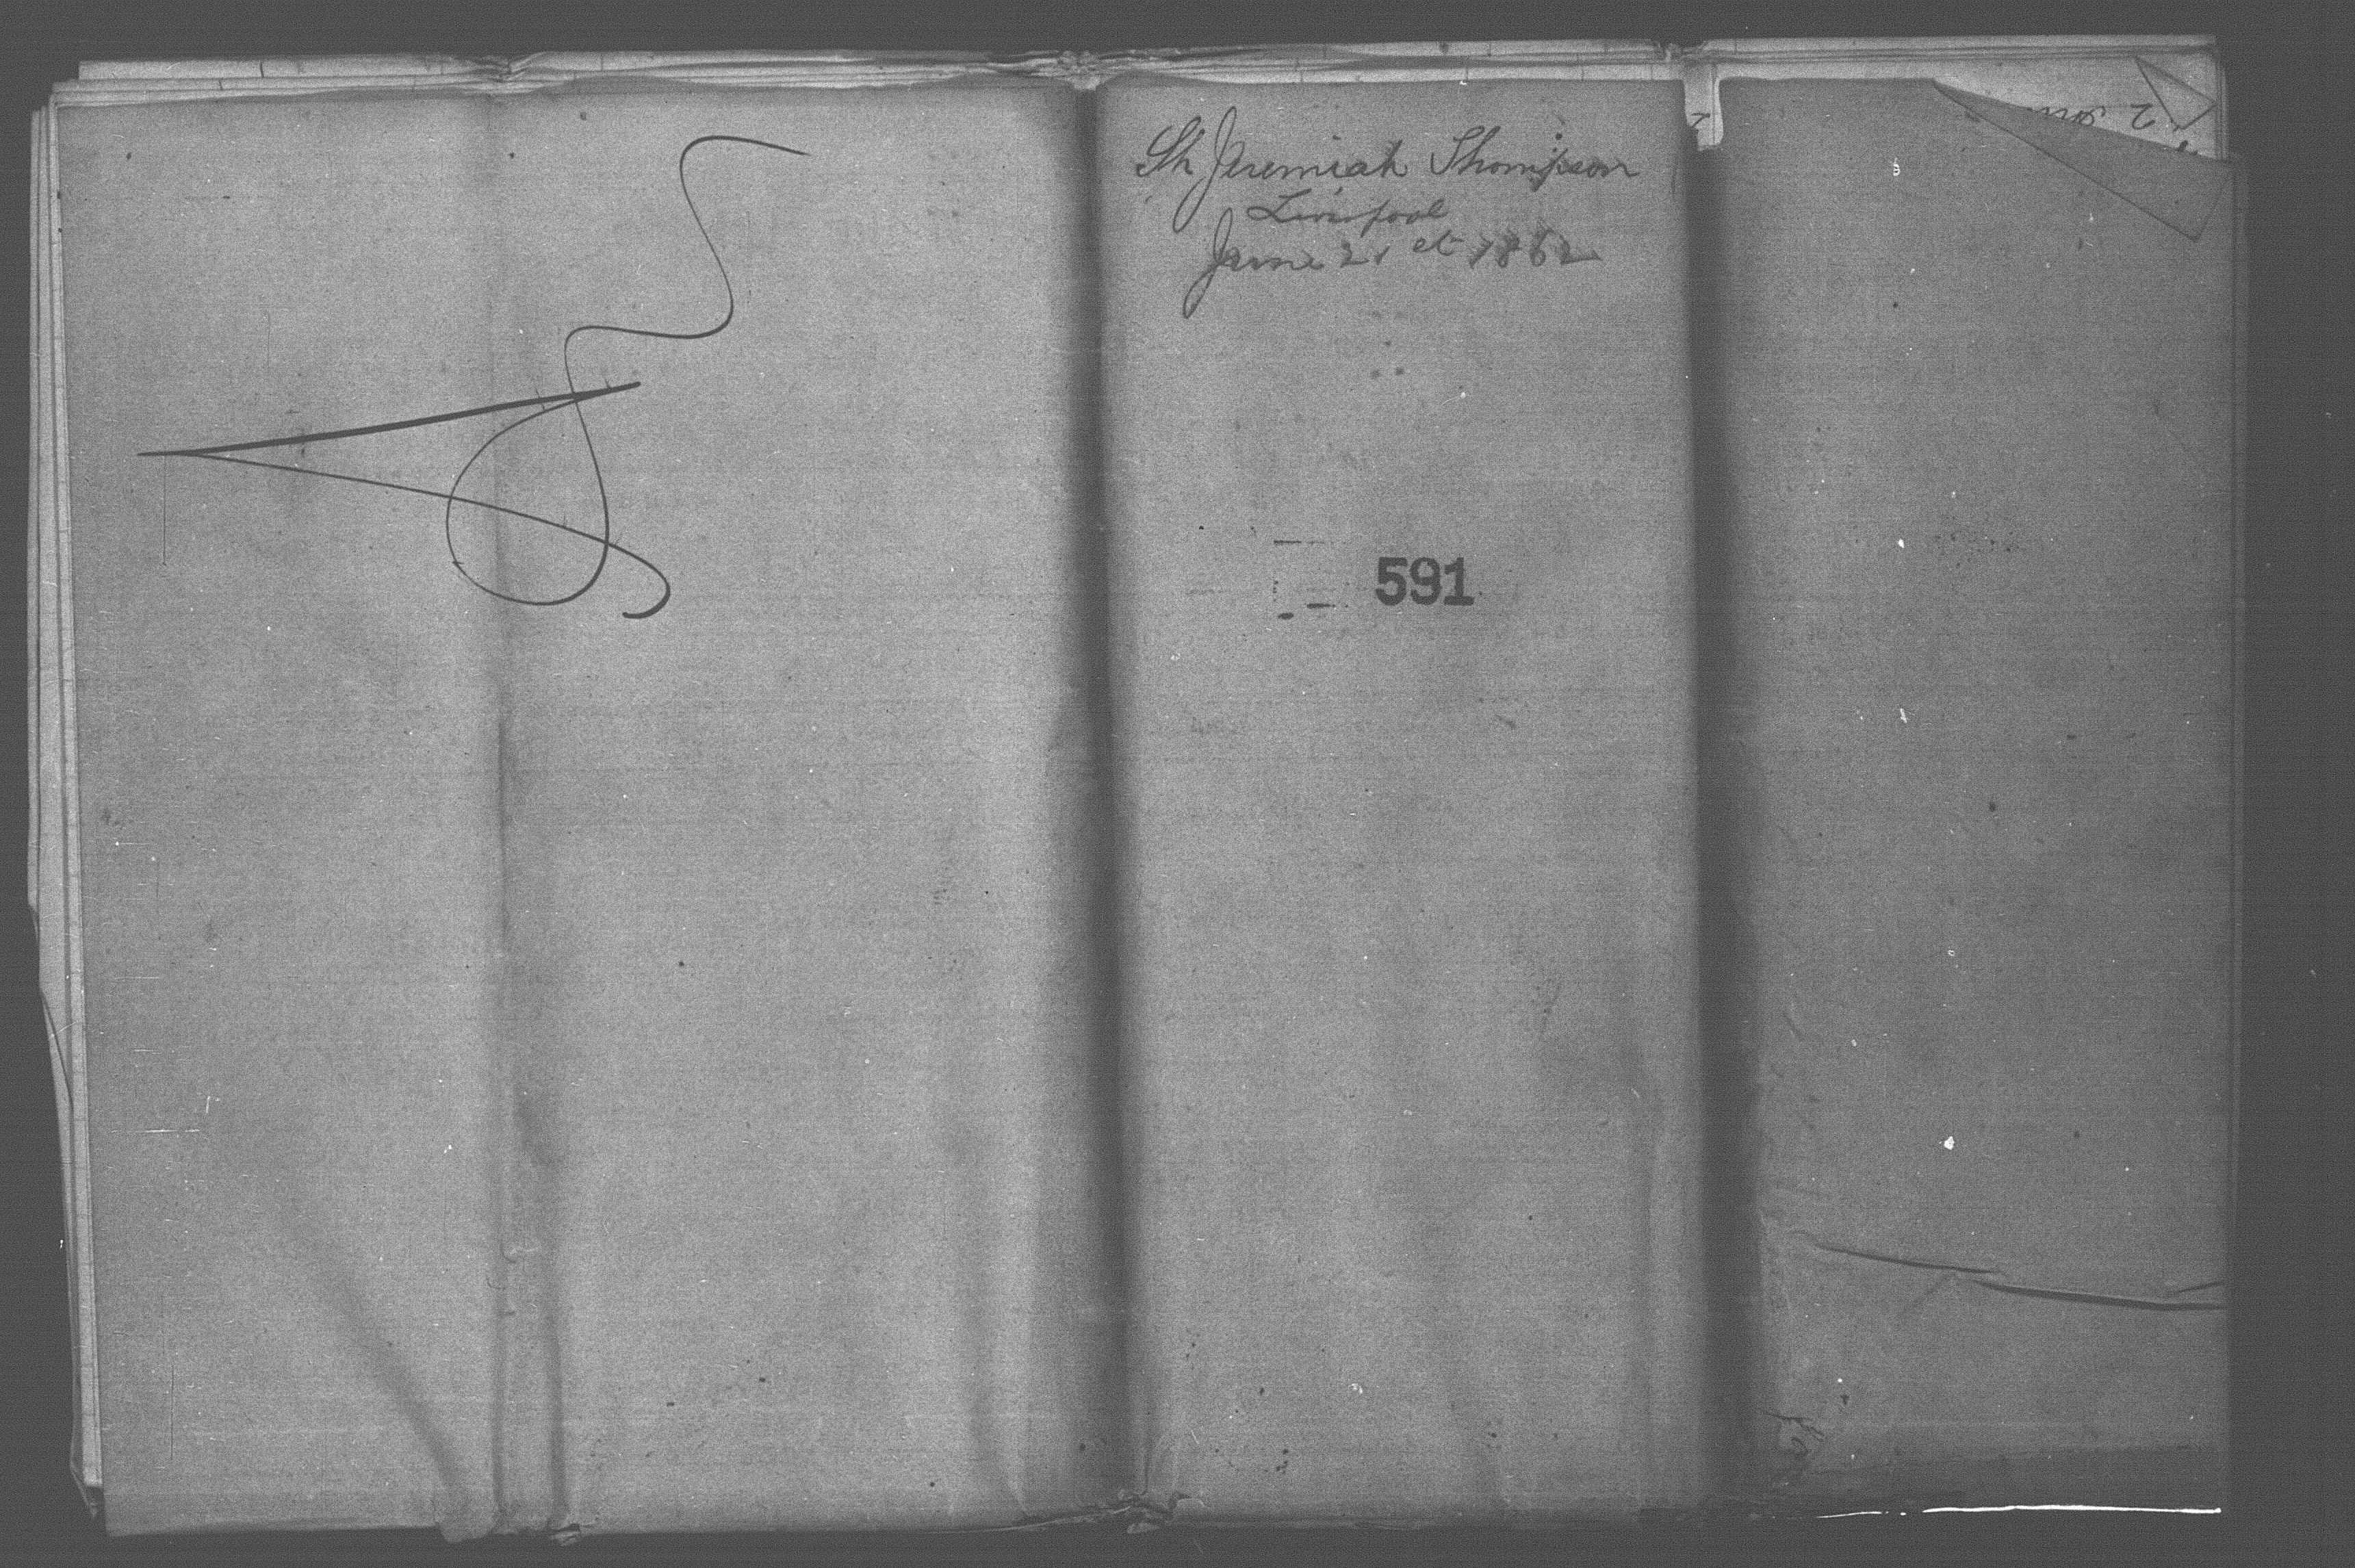 Sh Jeremiah Thompson
Liverpool
June 21st 1862
591